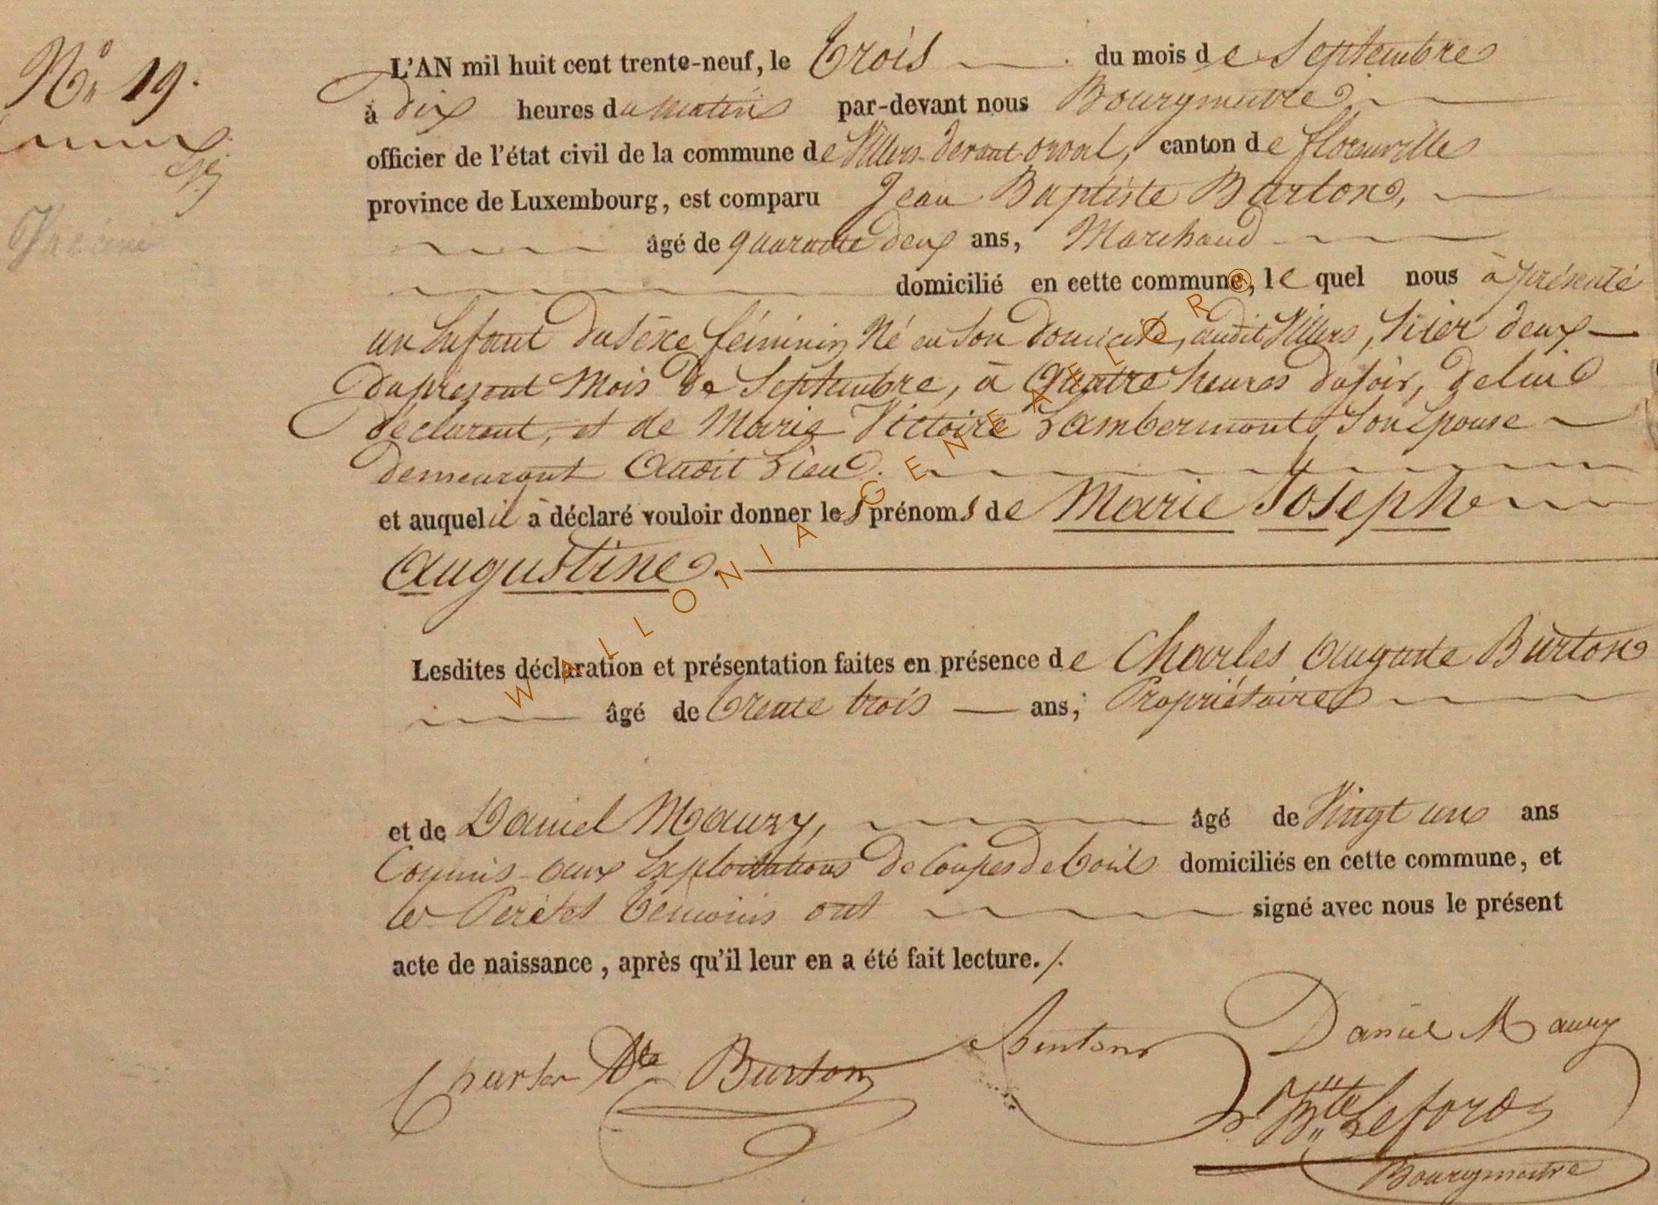 N° 19.
L'AN mil huit cent trente-neuf, le trois du mois de Septembre
à dix heures du matin par-devant nous Bourgmestre
officier de l'état civil de la commune de Villers devant orval, canton de florenville
province de Luxembourg, est comparu Jean Baptiste Burton,
âgé de quarante deux ans, Marchand
domicilié en cette commune, le quel nous à présenté
un Enfant du sèxe féminin, Né en Son domicile, audit Villers, hier deux
du present Mois de Septembre, à quatre heures du soir, de lui
déclarant, et de Marie Victoire Lambermont, Son Epouse
demeurant audit Lieu.
et auquel il à déclaré vouloir donner les prénoms de Marie Josephe
Augustine.
Lesdites déclaration et présentation faites en présence de Charles Auguste Burton
âgé de trente trois ans, Propriétaire
et de Daniel Maury, âgé de Vingt un ans
Commis aux Exploitations de Coupes de bois domiciliés en cette commune, et
témoins ont signé avec nous le présent
acte de naissance, après qu'il leur en a été fait lecture./.
Charles Ate Burton
Burton
Daniel Maury
Bte Leford
Bourgmestre
WALLONIA GENEALOR®